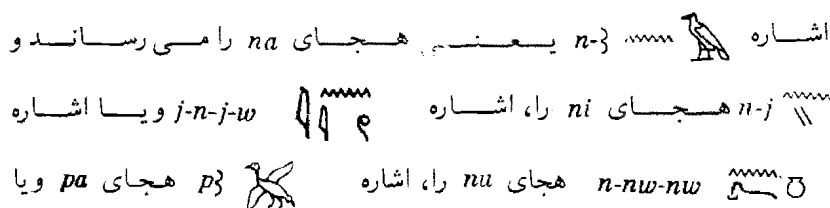 اشاره n-ꜣ یعنی هجای na را می‌رساند و
n-j هجای ni را، اشاره j-n-j-w ویا اشاره
n-nw-nw هجای nu را، اشاره pꜣ هجای pa ویا